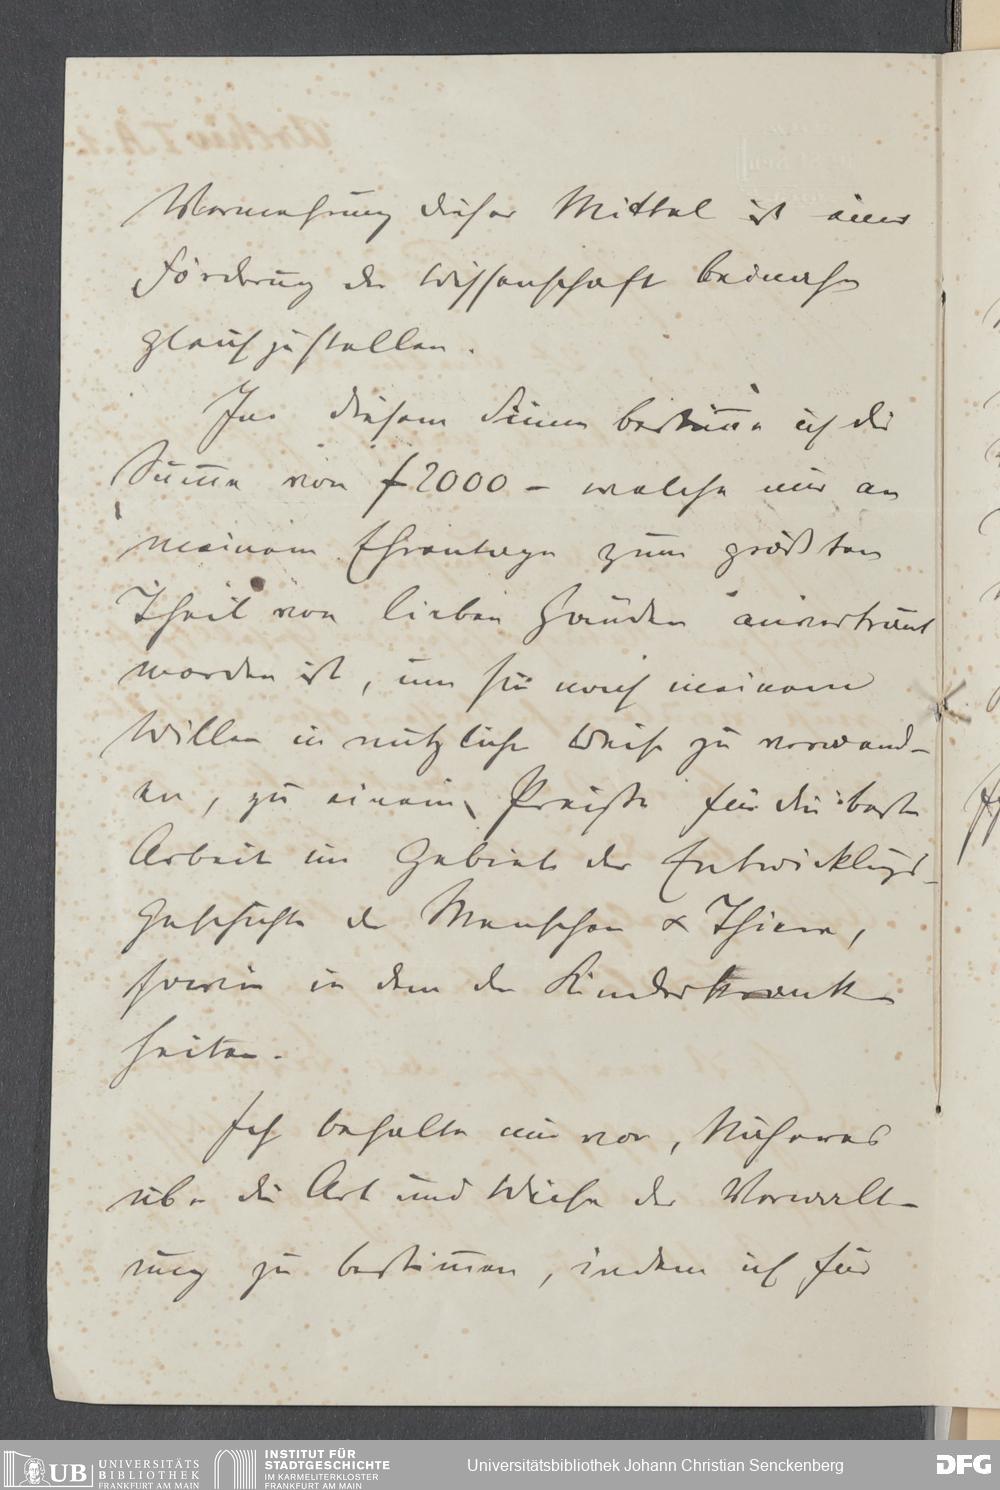 Vermehrung dieser Mittel ist einer
Förderung der Wissenschaft beinahe
gleichzustellen.
In diesem Sinne bestimme ich die
Summe von f 2000 – welche mir an
meinem Ehrentage zum größten
Theil von lieben Händen anvertraut
worden ist, um sie nach meinem
Willen in nützlicher Weise zu verwend-
en, zu einem Preise für die beste
Arbeit im Gebiete der Entwicklungs-
geschichte der Menschen & Thiere,
sowie in dem der Kinderkrank
heiten.
Ich behalte mir vor, Näheres
über die Art und Weise der Verwalt-
ung zu bestimmen, indem ich für
UB UNIVERSITÄTS
BIBLIOTHEK
FRANKFURT AM MAIN
INSTITUT FÜR
STADTGESCHICHTE
IM KARMELITERKLOSTER
FRANKFURT AM MAIN
Universitätsbibliothek Johann Christian Senckenberg
DFG